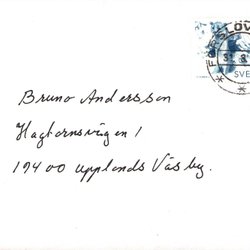 FORSLÖV
SVE
Bruno Andersson
Hagtornsvägen 1
194 00 Upplands Väsby.